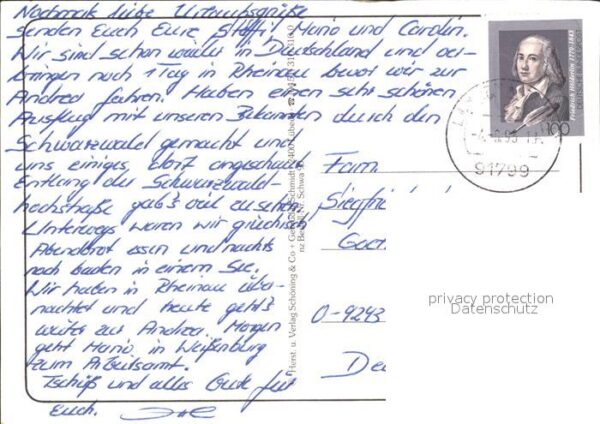 Nochmals liebe Urlaubsgrüße
senden Euch Eure Steffi, Mario und Carolin.
Wir sind schon wieder in Deutschland und ver-
bringen noch 1 Tag in Rheinau bevor wir zur
Andrea fahren. Haben einen sehr schönen
Ausflug mit unseren Bekannten durch den
Schwarzwald gemacht und
uns einiges dort angeschaut
Entlang der Schwarzwald-
hochstraße gab's viel zu sehen.
Unterwegs waren wir griechisch
Abendbrot essen und nachts
noch baden in einem See.
Wir haben in Rheinau über-
nachtet und heute geht's
weiter zur Andrea. Morgen
geht Mario in Weißenburg
zum Arbeitsamt.
Tschüß und alles Gute für
Euch.
Herst. u. Verlag Schöning & Co + Gebrüder Schmidt
Bestell-Nr. Schwa
Friedrich Hölderlin 1770-1843
DEUTSCHE BUNDESPOST
100
91799
Fam.
Siegfrie
Goet
O-9293
De
privacy protection
Datenschutz